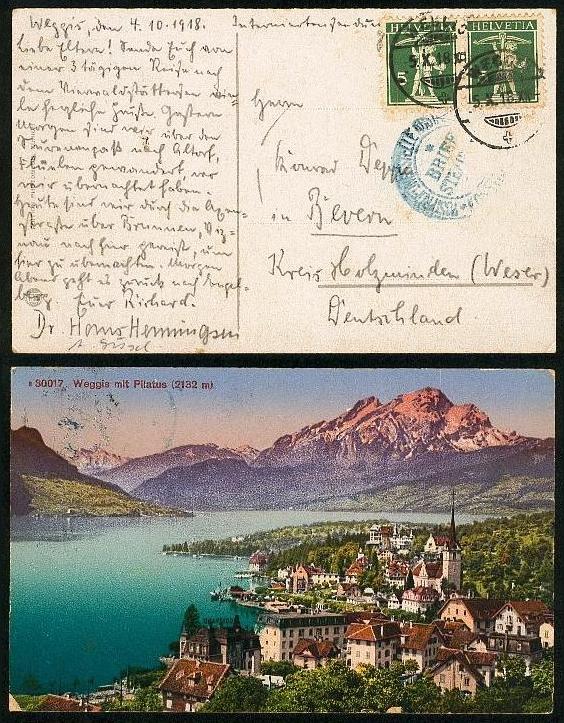 Weggis, den 4.10.1918.
Interniertensendung
Liebe Eltern! Sende Euch von
einer 3 tägigen Reise nach
dem Vierwaldstättersee vie-
le herzliche Grüße. Gestern
Morgen sind wir über den
Surenenpaß nach Altorf,
Flüelen gewandert, wo
wir übernachtet haben.
Heute sind wir durch die Axen-
straße über Brunnen, Viz-
nau nach hier gereist, um
hier zu übernachten. Morgen
Abend geht es zurück nach Engel-
berg. Euer Richard.
Dr. Hans Henningsen
HELVETIA
HELVETIA
5
5.X.18
5.X.18
BRIEF
Herrn
Konrad Deppe
in Bevern
Kreis Holzminden (Weser)
Deutschland
30017 Weggis mit Pilatus (2132 m)